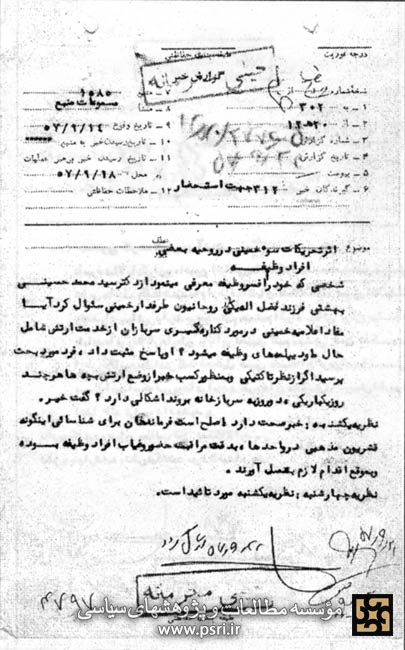 درجه فوریت
طبقه‌بندی حفاظتی
خیلی محرمانه
گزارش خبر
نسخه شماره
۱ - به ۳۰۲
۲ - از ۱۲ﻫ۳۰
۳ - شماره گزارش
۴ - تاریخ گزارش
۵ - پیوست
۶ - گیرندگان خبر ۳۱۲ جهت استحضار
۷ - منبع ۱۰۸۵
۸ - منشأ مسموعات منبع
۹ - تاریخ وقوع ۵۷/۹/۱۴
۱۰ - تاریخ رسیدن خبر به منبع
۱۱ - تاریخ رسیدن خبر برهبر عملیات
محل ۵۷/۹/۱۸
۱۲ - ملاحظات حفاظتی
موضوع اثر تحریکات سوء خمینی در روحیه بعضی
افراد وظیفه
شخصی که خود را افسر وظیفه معرفی مینمود از دکتر سید محمد حسینی
بهشتی فرزند فضل اله یکی روحانیون طرفدار خمینی سئوال کرد آیا
مفاد اعلامیه خمینی در مورد کناره گیری سربازان از خدمت ارتش شامل
حال ماو دیپلمه‌های وظیفه میشود ؟ او پاسخ مثبت داد ، فرد مورد بحث
پرسید اگر از نظر تاکتیکی و بمنظور کسب خبر از وضع ارتش بچه ها هر چند
روز یکبار یکی دو روز به سربازخانه بروند اشکالی دارد ؟ گفت خیر .
نظریه یکشنبه : خبر صحت دارد اصلح است فرماندهان برای شناسائی اینگونه
قشریون مذهبی در واحدها ، بدقت مراقبت حضور و غیاب افراد وظیفه بوده
و بموقع اقدام لازم بعمل آورند .
نظریه چهارشنبه : نظریه یکشنبه مورد تائید است .
خیلی محرمانه
۴۷۹۷
مؤسسه مطالعات و پژوهشهای سیاسی
www.psri.ir